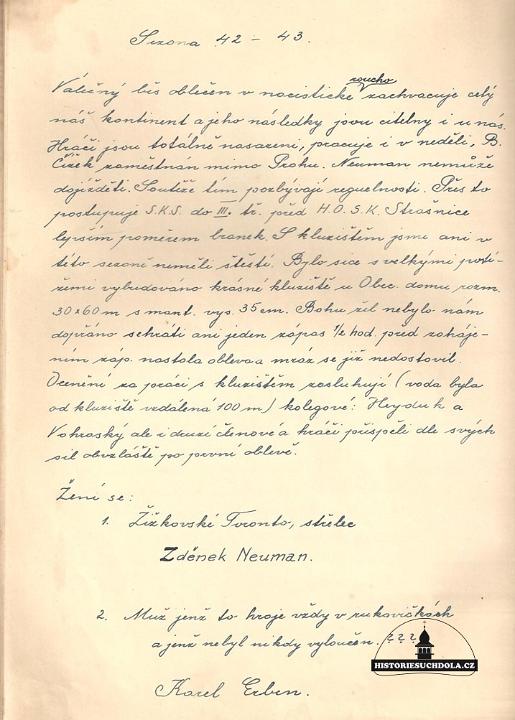 Sezona 42 - 43.
Válečný běs oblečen v nacistické roucho zachvacuje celý
náš kontinent a jeho následky jsou citelny i u nás.
Hráči jsou totálně nasazeni, pracuje i v neděli, B.
Čížek zaměstnán mimo Prahu. Neuman nemůže
dojížděti. Soutěže tím pozbývají regulelnosti. Přes to
postupuje S.K.S. do III. tř. před H.O.S.K. Strašnice
lepším poměrem branek. S kluzištěm jsme ani v
této sezoně neměli štěstí. Bylo sice s velkými potí-
žemi vybudováno krasné kluziště u Obec. domu rozm.
30x60 m s mant. vys. 35 cm. Bohu žel nebylo nám
dopřáno sehráti ani jeden zápas 1/2 hod. před zaháje-
ním záp. nastala obleva a mráz se již nedostavil.
Ocenění za práci s kluzištěm zasluhují (voda byla
od kluziště vzdálená 100 m) kolegové: Heyduk a
Vohraský ale i druzí členové a hráči přispěli dle svých
sil obzvláště po první oblevě.
Žení se:
1. Žižkovské Toronto, střelec
Zděnek Neuman.
2. Muž jenž to hraje vždy v rukavičkách
a jenž nebyl nikdy vyloučen. ???
HISTORIESUCHDOLA.CZ
Karel Erben.